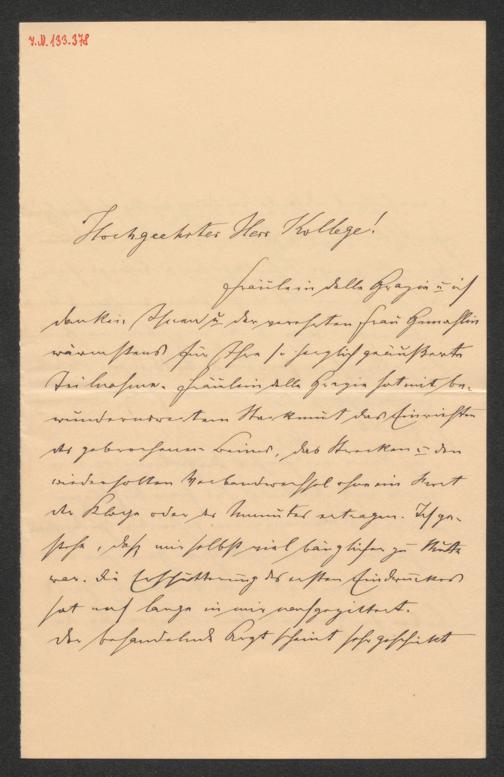 I.N. 133.378
Hochgeehrter Herr Kollege!
Fräulein delle Grazie u. ich
danken Ihnen u. der verehrten Frau Gemahlin
wärmstens für Ihre so herzlich geäußerte
Teilnahme. Fräulein delle Grazie hat mit be-
wundernswertem Starkmut das Einrichten
des gebrochenen Beines, das Strecken u. den
wiederholten Verbandwechsel ohne ein Wort
der Klage oder des Unmutes ertragen. Ich ge-
stehe, daß mir selbst viel bänglicher zu Mute
war. Die Erschütterung des ersten Eindruckes
hat noch lange in mir nachgezittert.
Der behandelnde Arzt scheint sehr geschickt